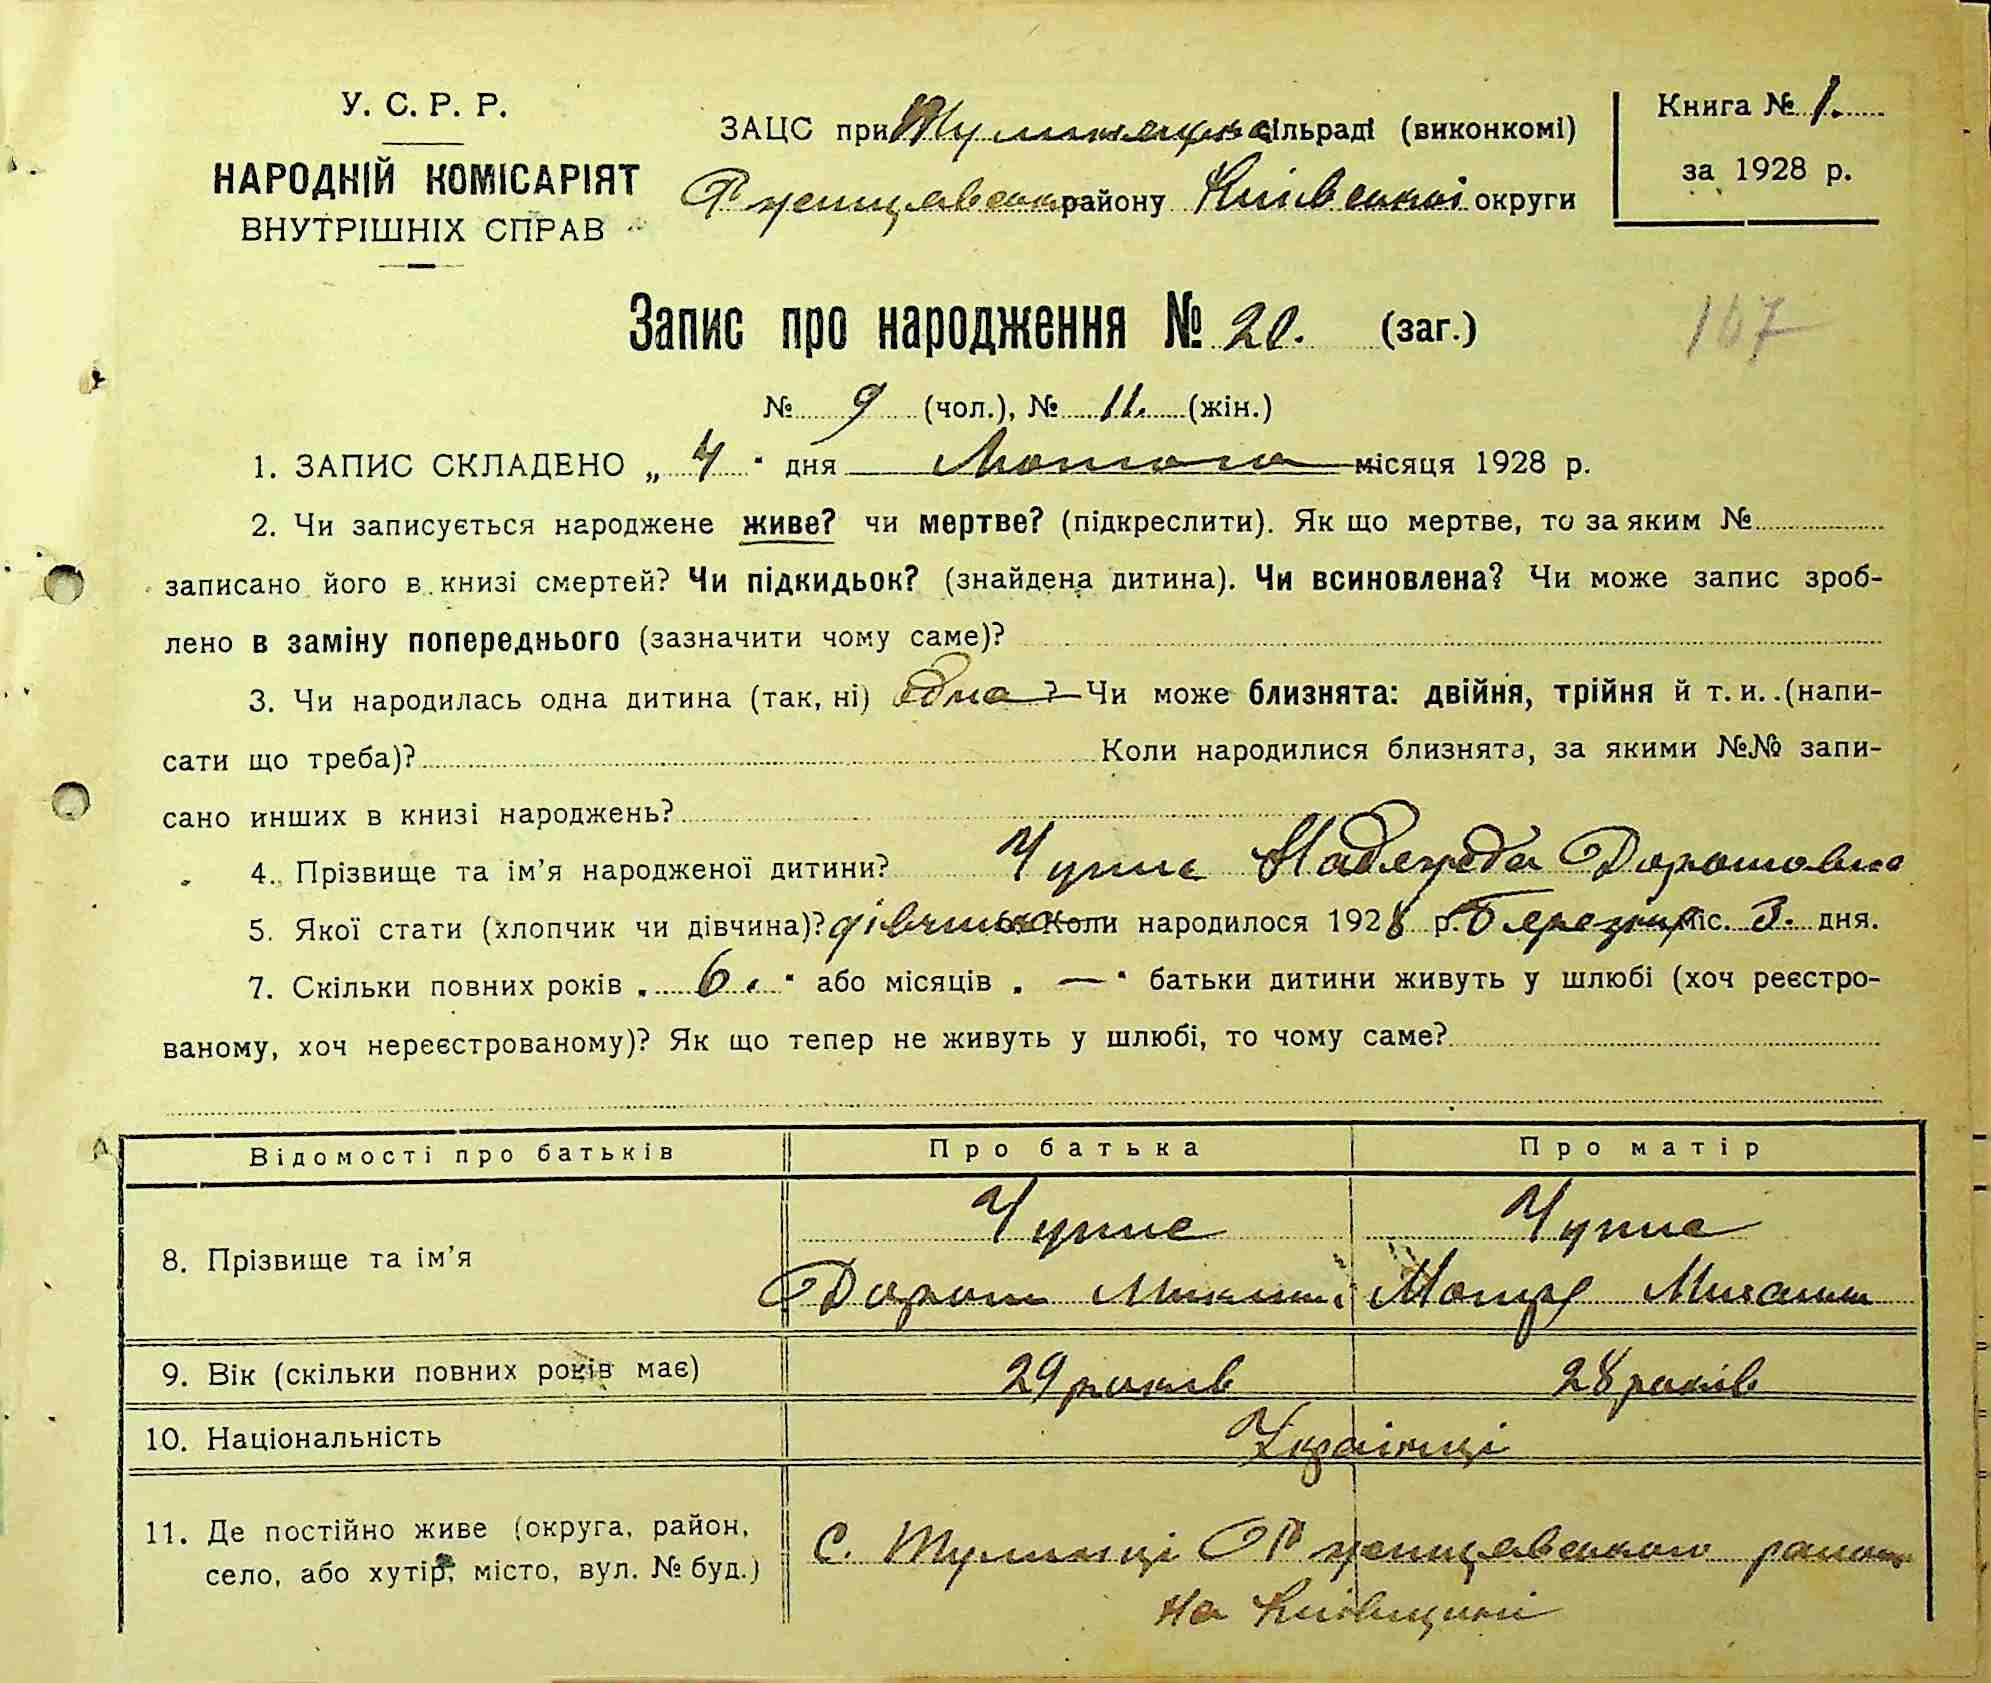 У. С. Р. Р.
НАРОДНІЙ КОМІСАРІЯТ
ВНУТРІШНІХ СПРАВ
ЗАЦС при сільраді (виконкомі)
Ржищевськ району Київської округи
Книга № 1.
за 1928 р.
Запис про народження № 20. (заг.)
167
№ 9 (чол.), № 11. (жін.)
1. ЗАПИС СКЛАДЕНО „ 4 " дня Лютого місяця 1928 р.
2. Чи записується народжене живе? чи мертве? (підкреслити). Як що мертве, то за яким №
записано його в книзі смертей? Чи підкидьок? (знайдена дитина). Чи всиновлена? Чи може запис зроб-
лено в заміну попереднього (зазначити чому саме)?
3. Чи народилась одна дитина (так, ні) одна ? Чи може близнята: двійня, трійня й т. и. (напи-
сати що треба)? Коли народилися близнята, за якими №№ запи-
сано инших в книзі народжень?
4. Прізвище та ім'я народженої дитини? Надежда Дорошовна
5. Якої стати (хлопчик чи дівчина)? дівчина Коли народилося 1928 р. Березня міс. 3. дня.
7. Скільки повних років „ 6. " або місяців „ — " батьки дитини живуть у шлюбі (хоч реєстро-
ваному, хоч нереєстрованому)? Як що тепер не живуть у шлюбі, то чому саме?
Відомості про батьків Про батька Про матір
8. Прізвище та ім'я
Дорош Мотря
9. Вік (скільки повних років має) 29 років 28 років
10. Національність Українці
11. Де постійно живе (округа, район,
село, або хутір, місто, вул. № буд.)
с. Тулинці Ржищевського району
на Київщині